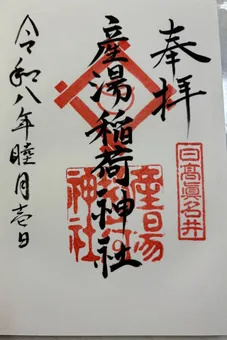 奉拝
日高眞名井
産湯稲荷神社
産湯
神社
令和八年睦月壱日